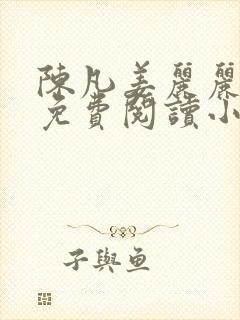 陳凡姜麗麗
免費閱讀小
子與魚